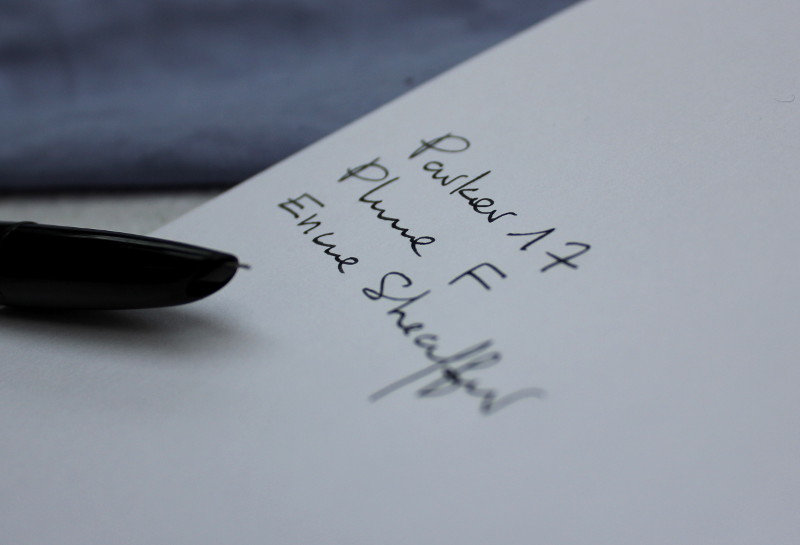 Parker 17
Plume F
Encre Sheaffer